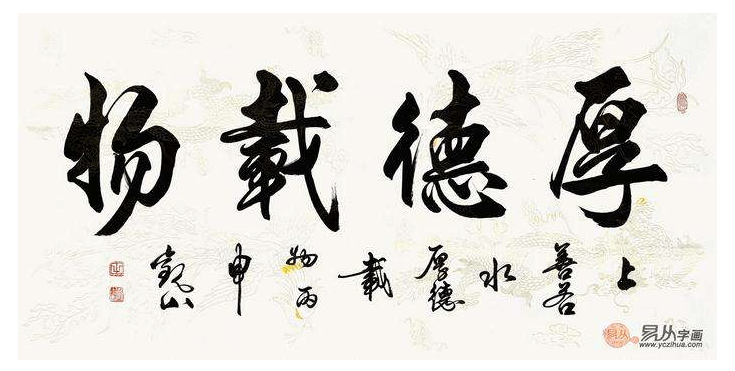 厚德載物
上善若水厚德載物丙申觀山
易从
易从字画
www.yczihua.com